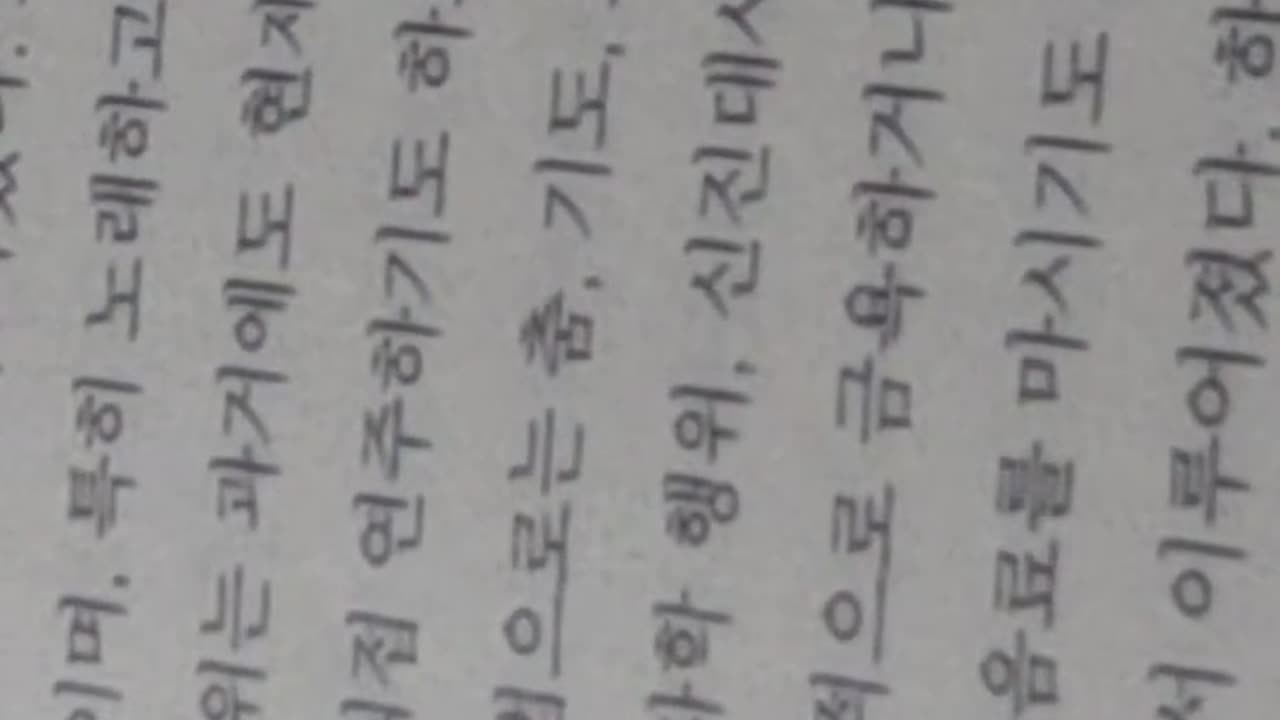 이며, 특히 노래하고
위는 과거에도
직접 연주하기도 하
으로는 춤, 기도,
화 행위, 신진대사
적으로 금욕하거나
음료를 마시기도
서 이루어졌다. 하